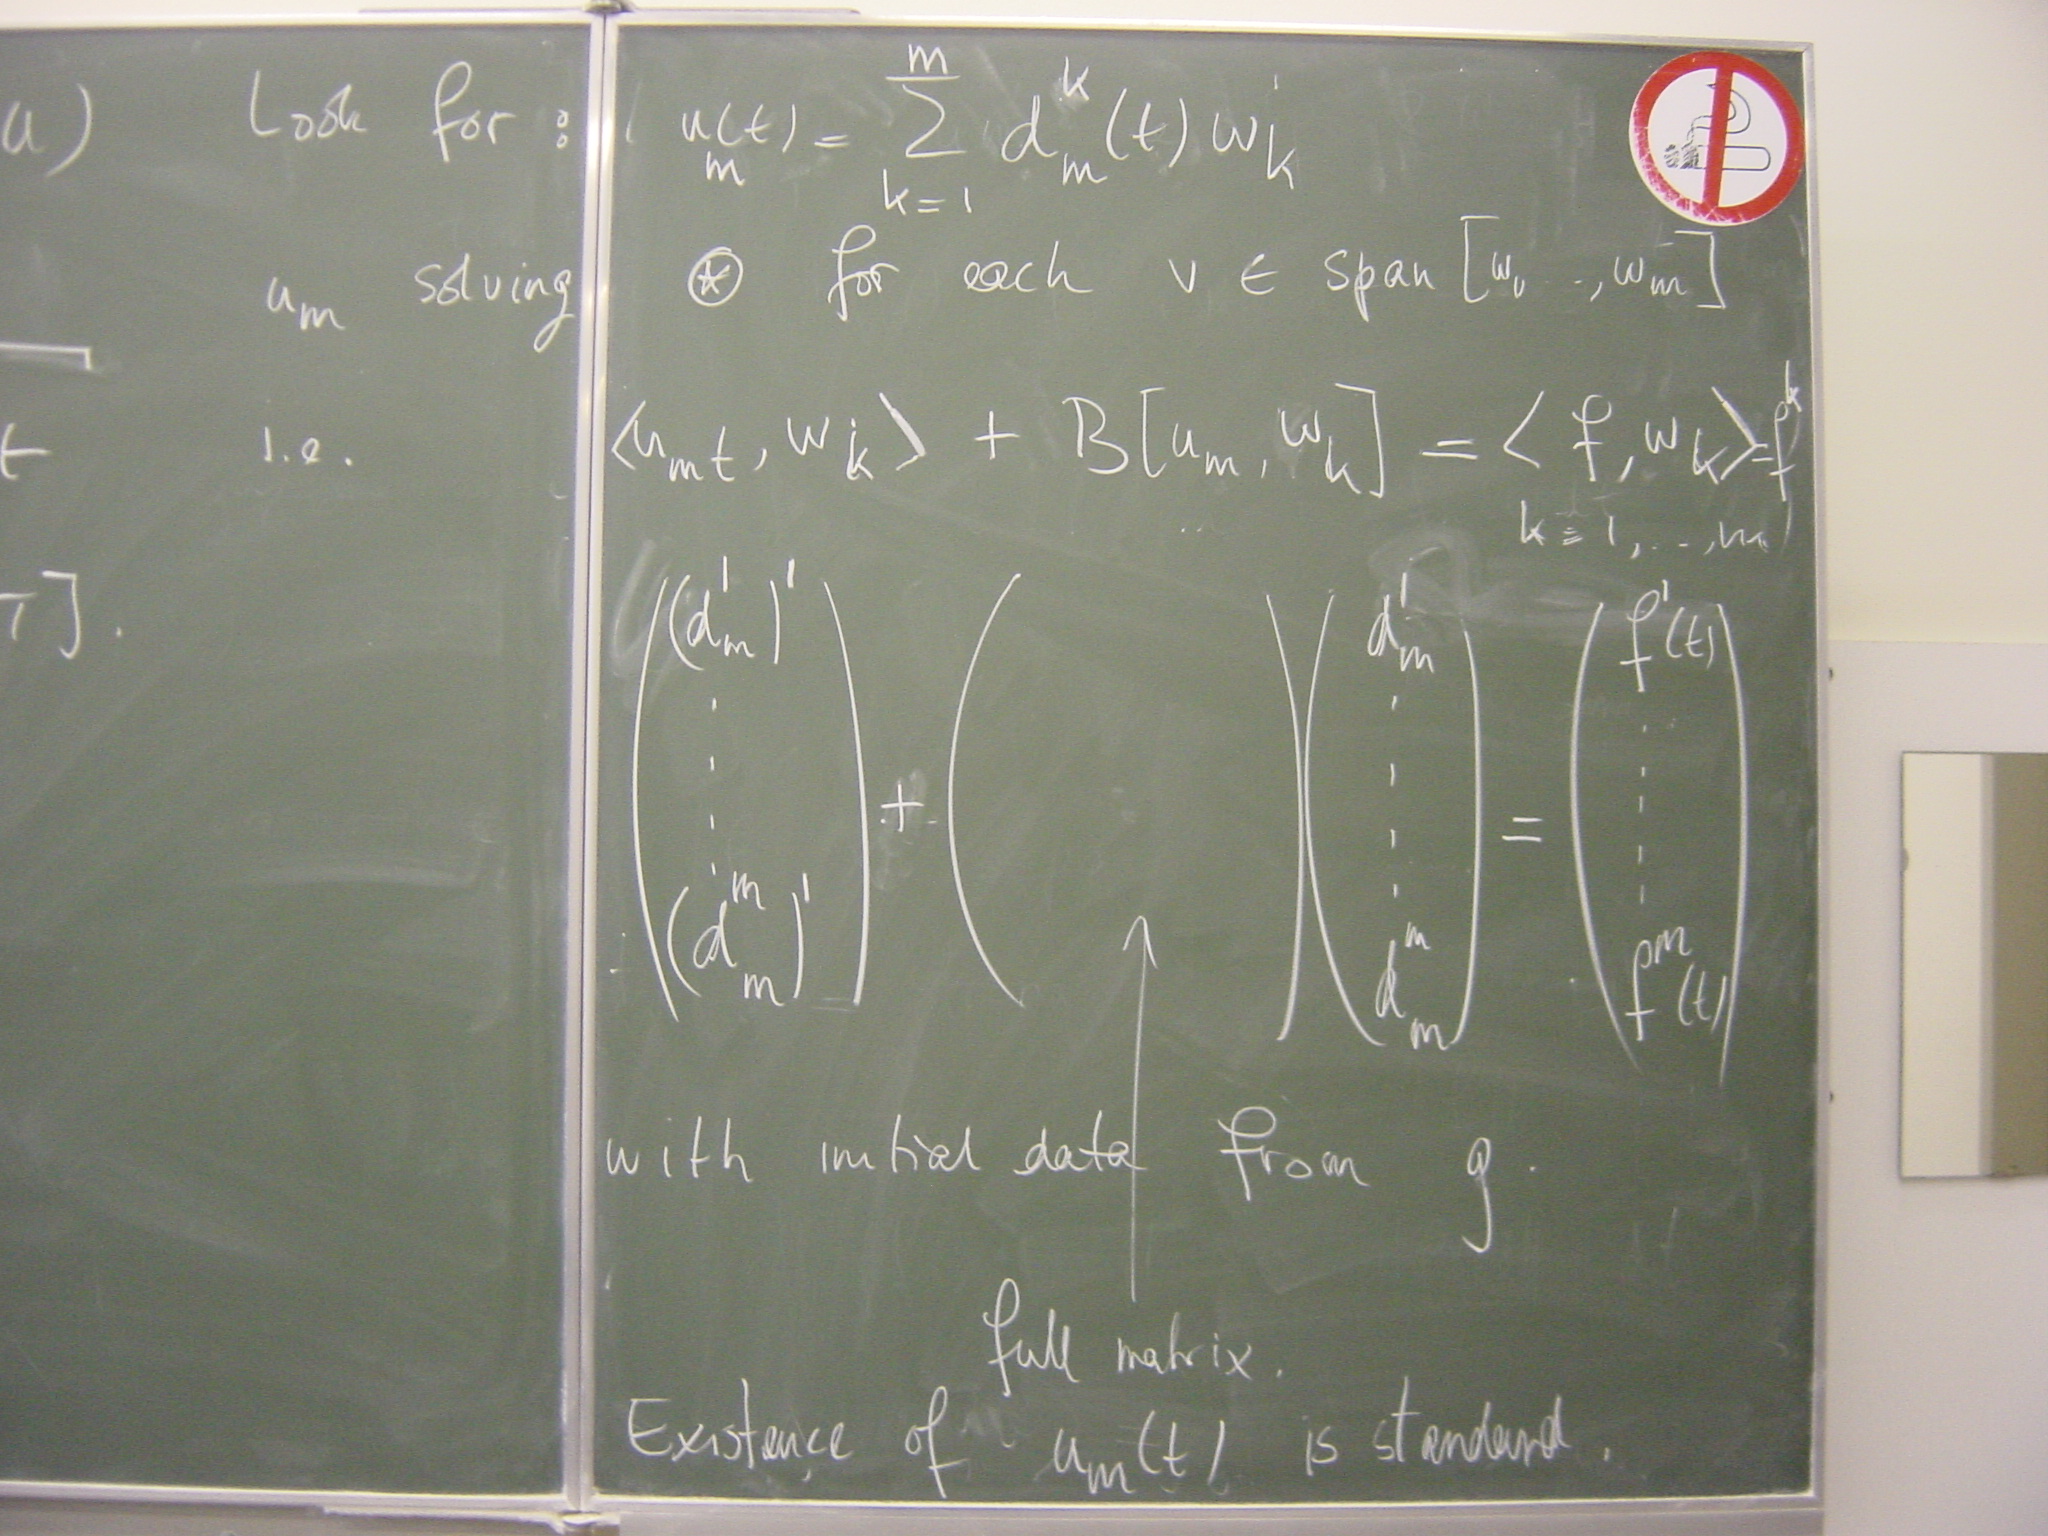 a) Look for : u_m(t) = \sum_{k=1}^{m} d_m^k(t) w_k
u_m solving ⊛ for each v ∈ span [w_1, ..., w_m]
t i.e. <u_{mt}, w_k> + B[u_m, w_k] = <f, w_k> = f^k
k = 1, ..., m
T]. \begin{pmatrix} (d_m^1)' \\ \vdots \\ (d_m^m)' \end{pmatrix} + \begin{pmatrix} & \\ & \end{pmatrix} \begin{pmatrix} d_m^1 \\ \vdots \\ d_m^m \end{pmatrix} = \begin{pmatrix} f^1(t) \\ \vdots \\ f^m(t) \end{pmatrix}
with initial data from g.
full matrix.
Existence of u_m(t) is standard.